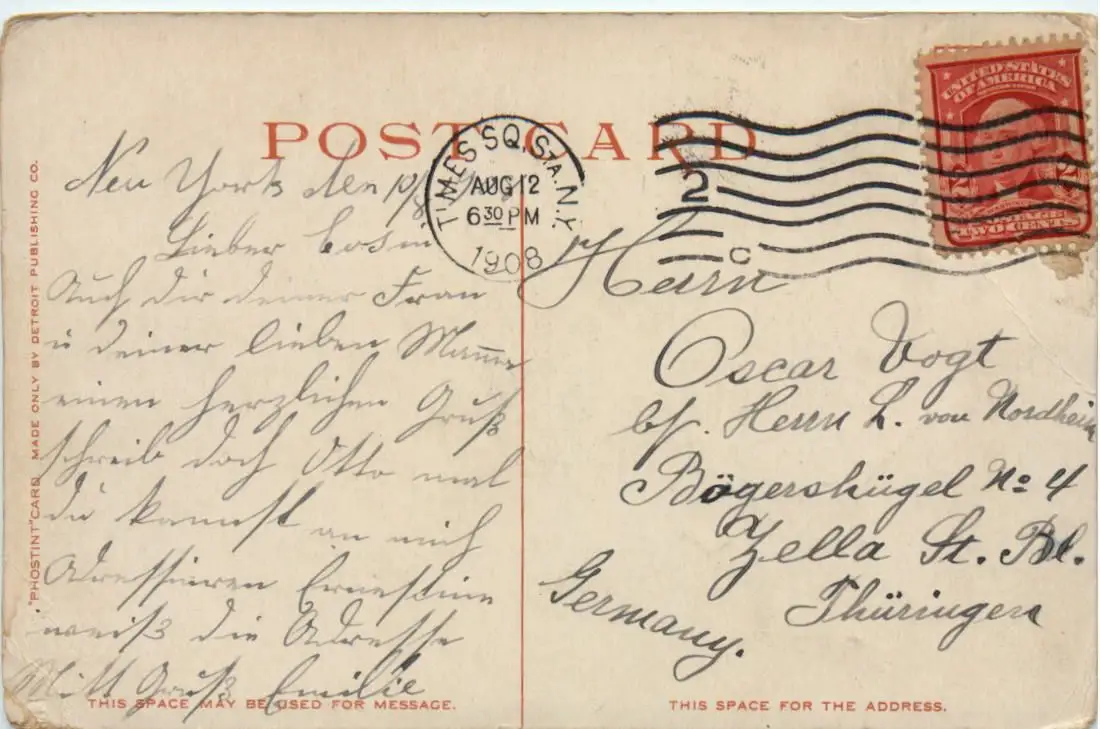 POST CARD
TIMES SQ. STA. N.Y.
AUG 12
6 30 PM
1908
2
C
UNITED STATES
OF AMERICA
2 2
TWO CENTS
"PHOSTINT" CARD MADE ONLY BY DETROIT PUBLISHING CO.
New York den 10/8
Lieber
Auch dir deiner Frau
u deiner lieben Mamme
einen herzlichen Gruß
schreib doch Otto mal
du kannst an mich
Adressieren Ernestine
weiß die Adresse
Mitt Gruß Emilie
THIS SPACE MAY BE USED FOR MESSAGE.
Herrn
Oscar Vogt
b/. Herrn L. von Nordheim
Bögershügel No 4
Zella St. Bl.
Thüringen
Germany.
THIS SPACE FOR THE ADDRESS.